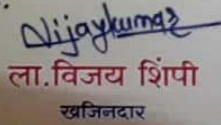 Vijaykumar
ला.विजय शिंपी
खजिनदार